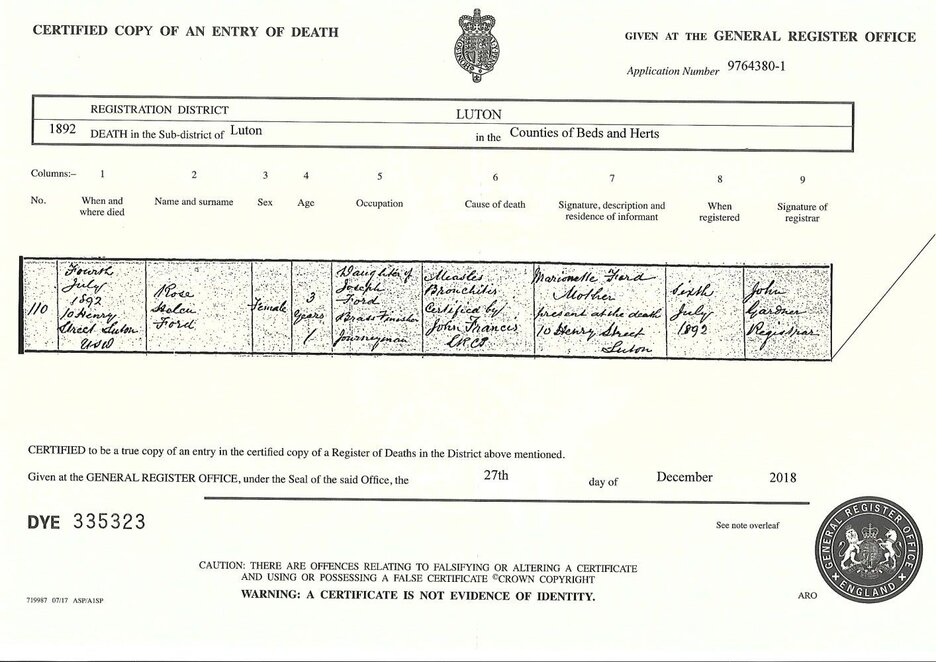 CERTIFIED COPY OF AN ENTRY OF DEATH
GIVEN AT THE GENERAL REGISTER OFFICE
Application Number 9764380-1
REGISTRATION DISTRICT LUTON
1892 DEATH in the Sub-district of Luton in the Counties of Beds and Herts
Columns:– 1 2 3 4 5 6 7 8 9
No. When and where died Name and surname Sex Age Occupation Cause of death Signature, description and residence of informant When registered Signature of registrar
110
Fourth
July
1892
10 Henry
Street Luton
USD
Rose
Helen
Ford
Female
3
Years
Daughter of
Joseph
Ford
Brass Finisher
Journeyman
Measles
Bronchitis
Certified by
John Francis
LRCP
Marionette Ford
Mother
present at the death
10 Henry Street
Luton
Sixth
July
1892
John
Gardner
Registrar
CERTIFIED to be a true copy of an entry in the certified copy of a Register of Deaths in the District above mentioned.
Given at the GENERAL REGISTER OFFICE, under the Seal of the said Office, the 27th day of December 2018
DYE 335323
See note overleaf
CAUTION: THERE ARE OFFENCES RELATING TO FALSIFYING OR ALTERING A CERTIFICATE
AND USING OR POSSESSING A FALSE CERTIFICATE ©CROWN COPYRIGHT
WARNING: A CERTIFICATE IS NOT EVIDENCE OF IDENTITY.
719987 07/17 ASP/A1SP
ARO
GENERAL REGISTER OFFICE
ENGLAND